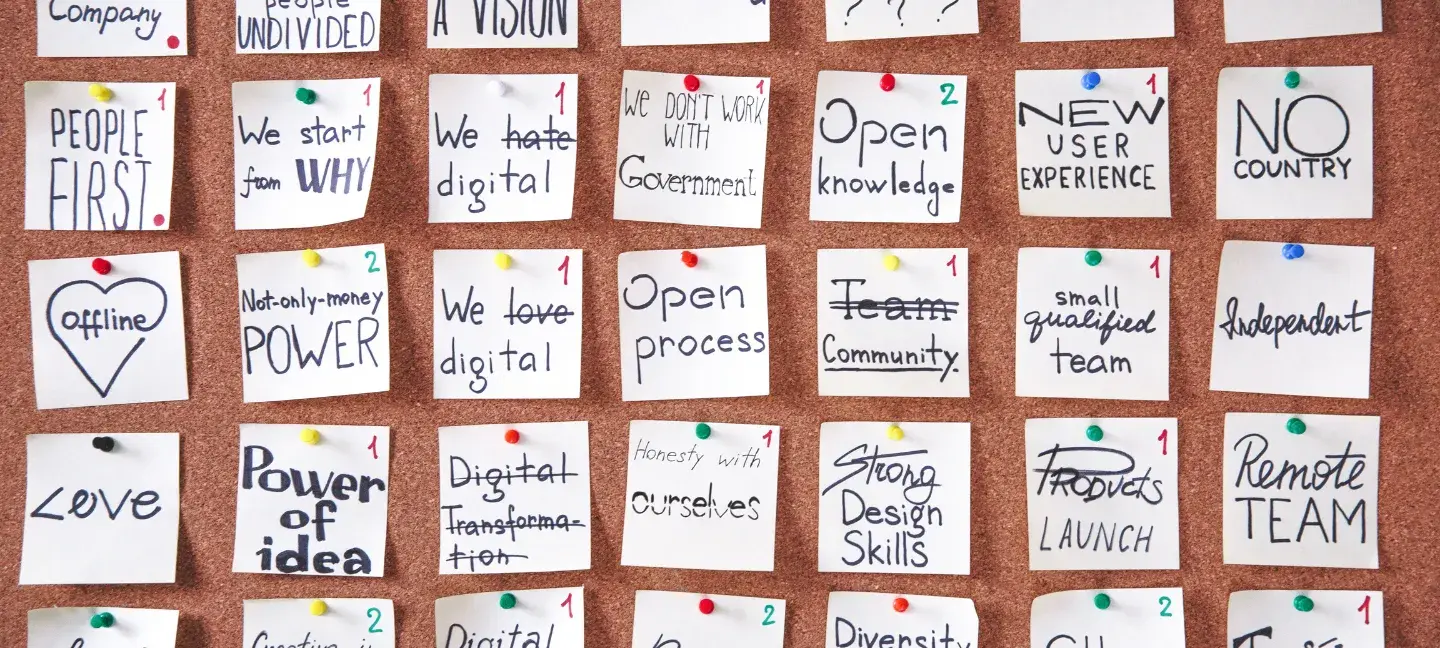 Company
people
UNDIVIDED
A VISION
? ? ?
1
PEOPLE
FIRST
1
We start
from WHY
1
We hate
digital
1
We DON'T WORK
WITH
Government
2
Open
knowledge
1
NEW
USER
EXPERIENCE
NO
COUNTRY
offline
2
Not-only-money
POWER
1
We love
digital
Open
process
1
Team
Community.
1
small
qualified
team
Independent
Love
1
Power
of
idea
Digital
Transforma-
tion
1
Honesty with
ourselves
Strong
Design
Skills
1
PRODUCTS
LAUNCH
Remote
TEAM
2
1
Digital
2
Diversity
2
1